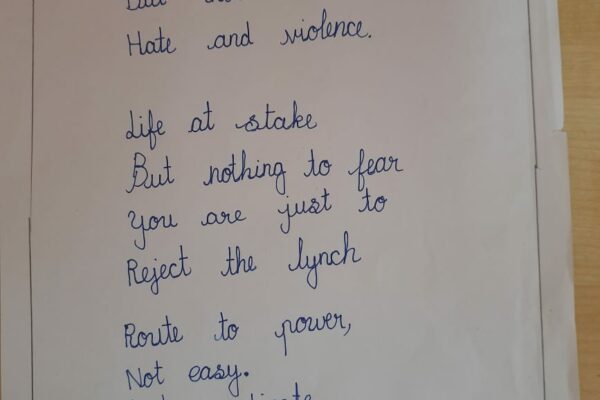 Hate and violence.
Life at stake
But nothing to fear
You are just to
Reject the lynch
Route to power,
Not easy.